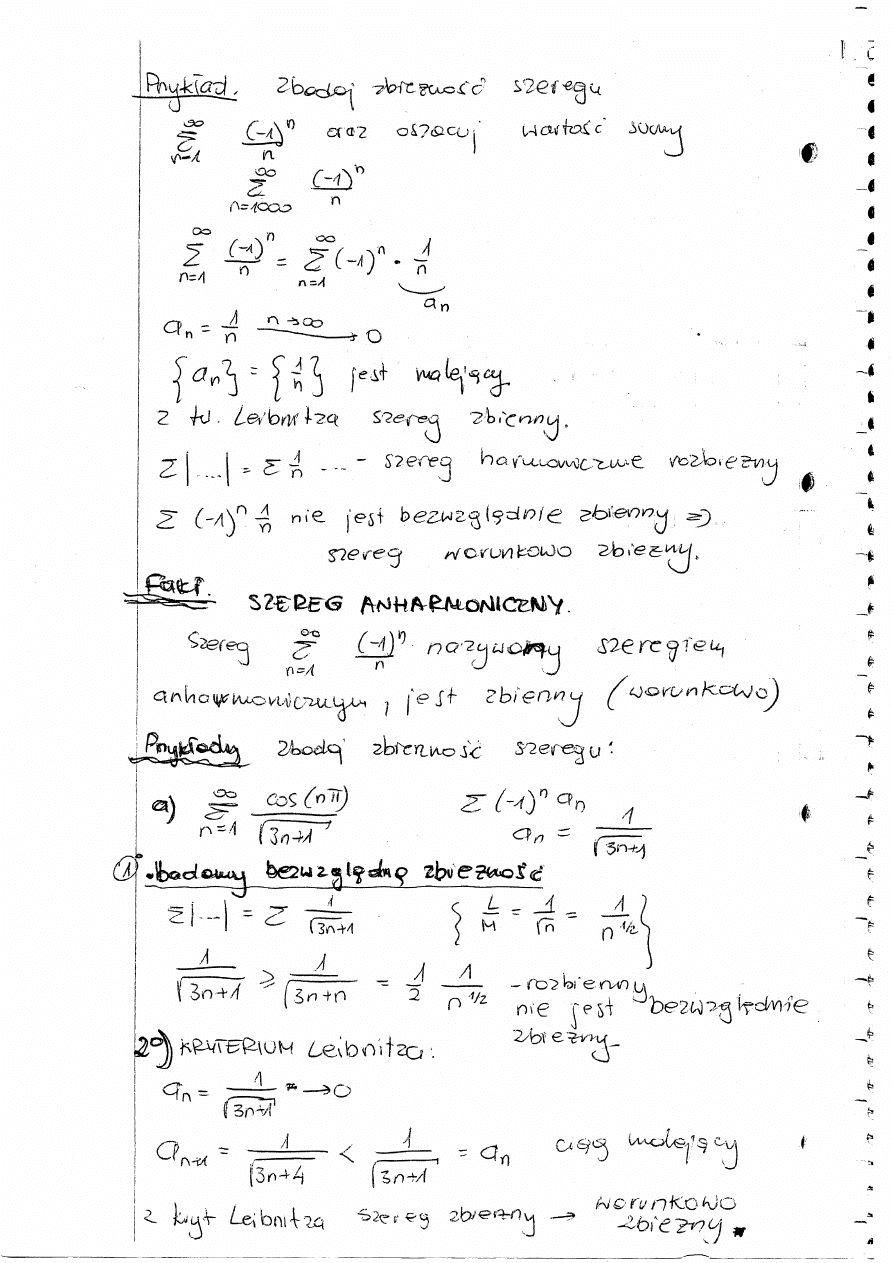 Przykład. Zbadaj zbieżność szeregu
∞∑n=1 (-1)^n/n oraz oszacuj wartość sumy
∞∑n=1000 (-1)^n/n
∞∑n=1 (-1)^n/n = ∞∑n=1 (-1)^n · 1/n
an
an = 1/n n→∞ → 0
{an} = {1/n} jest malejący
z tw. Leibnitza szereg zbieżny.
Σ|....| = Σ 1/n ... - szereg harmonicznie rozbieżny
Σ (-1)^n 1/n nie jest bezwzględnie zbieżny =>
szereg warunkowo zbieżny.
Fakt. SZEREG ANHARMONICZNY.
Szereg ∞∑n=1 (-1)^n/n nazywamy szeregiem
anharmonicznym, jest zbieżny (warunkowo)
Przykłady Zbadaj zbieżność szeregu:
a) ∞∑n=1 cos(nπ)/√(3n+1) Σ(-1)^n an
an = 1/√(3n+1)
1° badamy bezwzględną zbieżność
Σ|...| = Σ 1/√(3n+1) {L/M = 1/√n = 1/n^1/2}
1/√(3n+1) ≥ 1/√(3n+n) = 1/2 1/n^1/2 - rozbieżny
nie jest bezwzględnie
zbieżny
2°) KRYTERIUM Leibnitza:
an = 1/√(3n+1) → 0
an+1 = 1/√(3n+4) < 1/√(3n+1) = an ciąg malejący
z kryt Leibnitza szereg zbieżny → warunkowo
zbieżny.